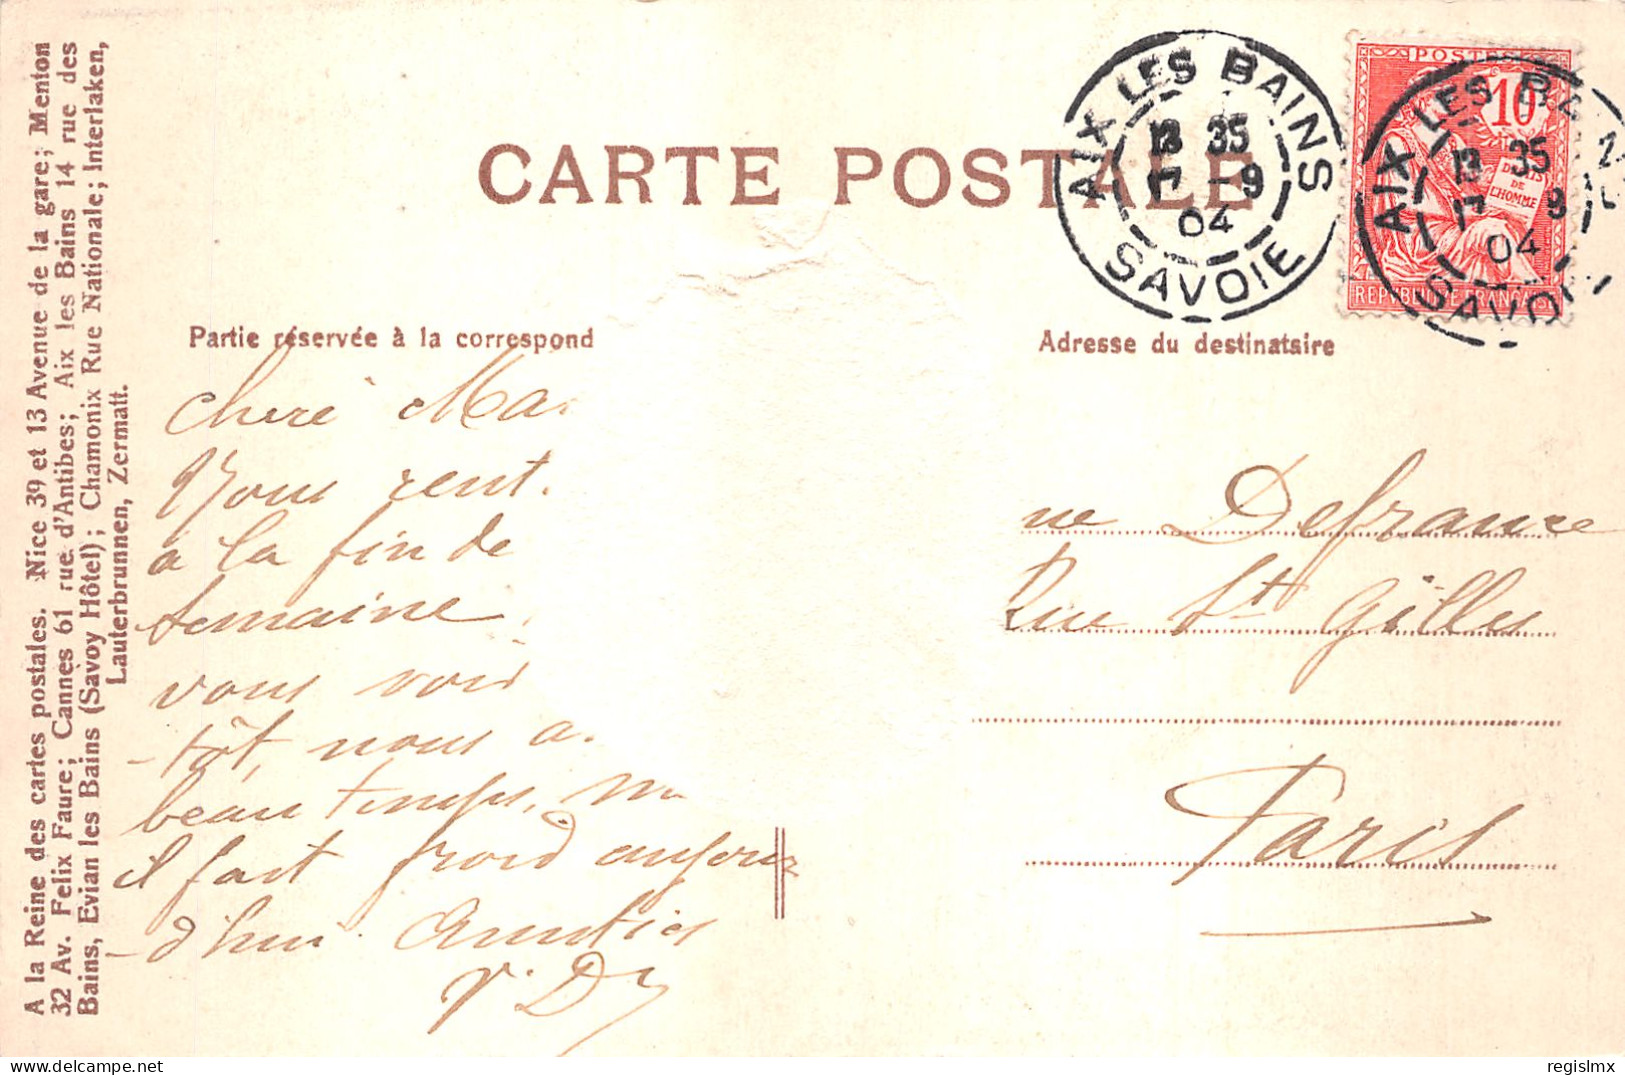 A la Reine des cartes postales. Nice 39 et 13 Avenue de la gare; Menton
32 Av. Felix Faure; Cannes 61 rue d'Antibes; Aix les Bains 14 rue des
Bains, Evian les Bains (Savoy Hôtel); Chamonix Rue Nationale; Interlaken,
Lauterbrunnen, Zermatt.
CARTE POSTALE
AIX LES BAINS
35
17 - 9
04
SAVOIE
POSTES
10
DROITS
DE
L'HOMME
REPUBLIQUE FRANÇAISE
AIX LES BA
35
17 9
04
SAVOI
Partie réservée à la correspond
Adresse du destinataire
Chere Ma
Nous rent
a la fin de
semaine
vous voir
-tôt, nous a
beau temps,
il fait froid aujour
-d'hui. Amitiés
V. D
ne Defrance
Rue St Gilles
Paris
regislmx